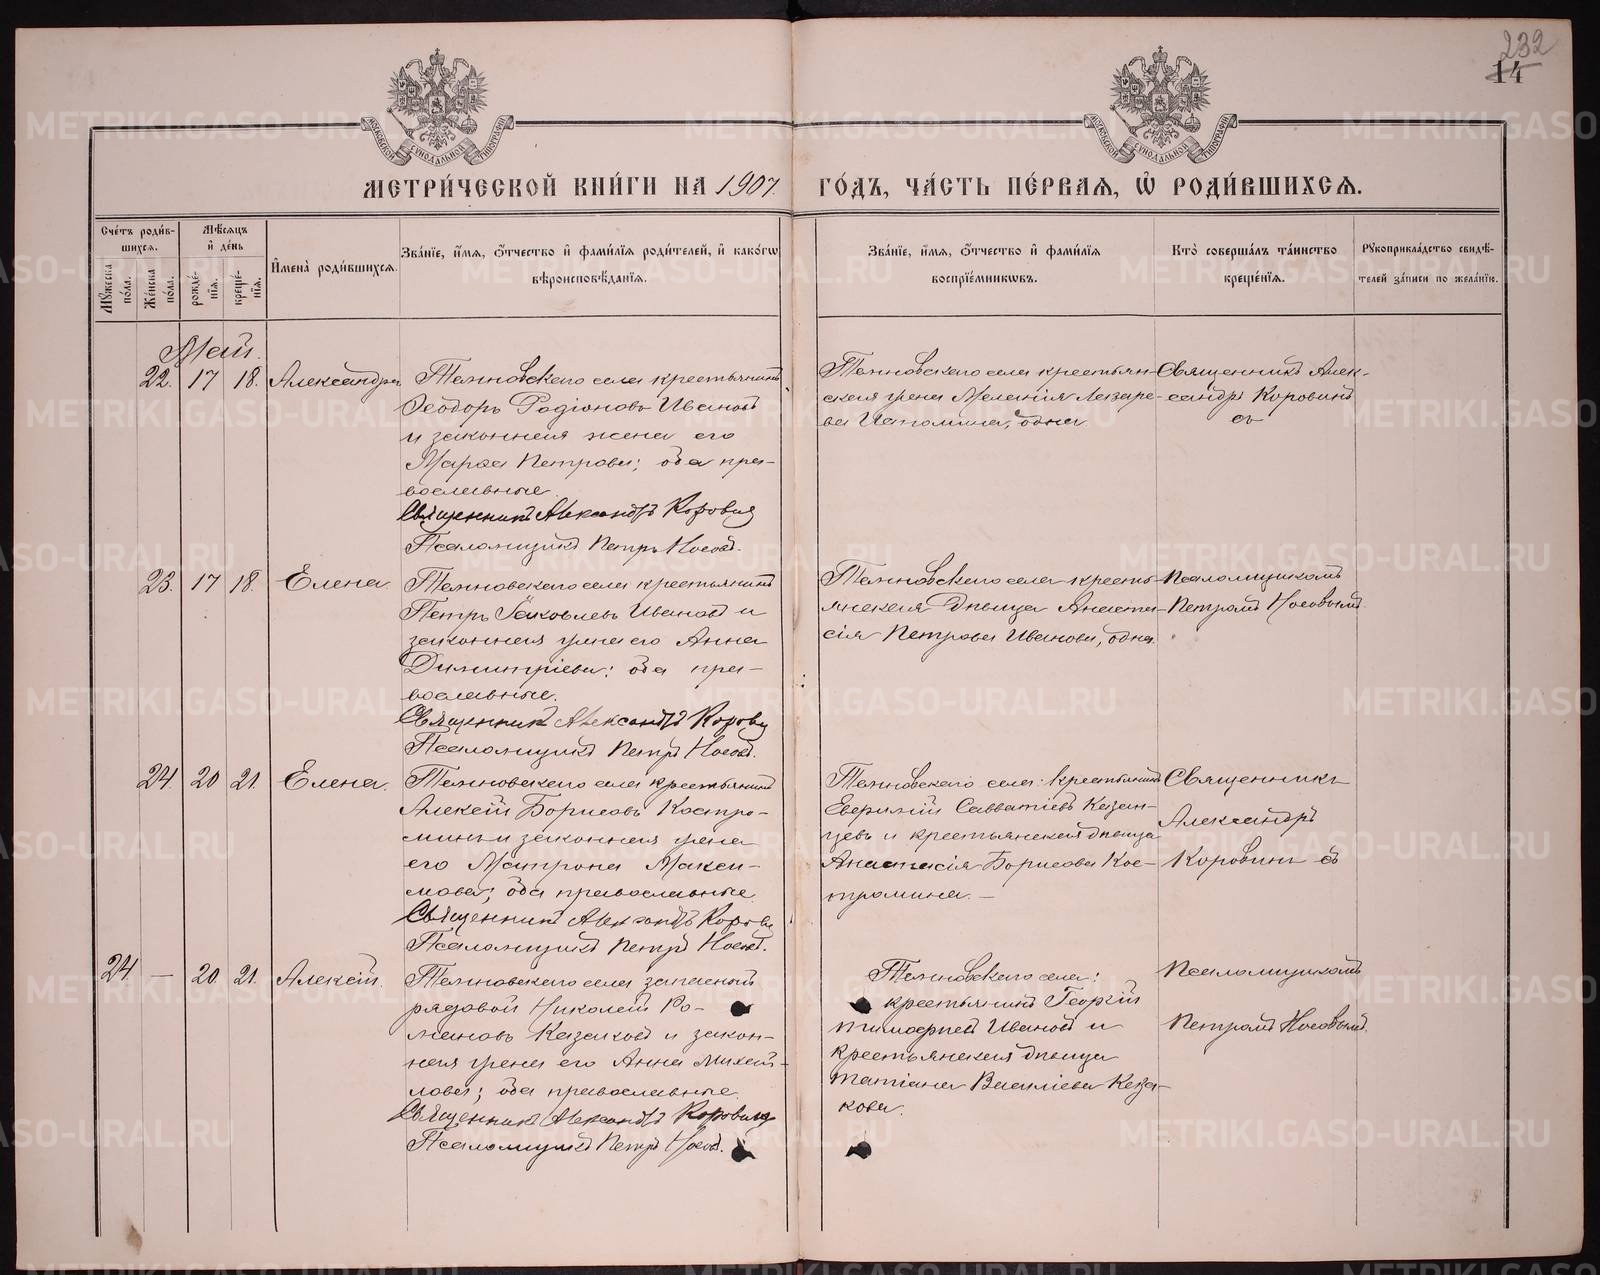 232
14
МОСКОВСКОЙ СѴНОДАЛЬНОЙ ТИПОГРАФІИ
МОСКОВСКОЙ СѴНОДАЛЬНОЙ ТИПОГРАФІИ
МЕТРИ́ЧЕСКОЙ КНИ́ГИ НА 1907 ГО́ДЪ, ЧА́СТЬ ПЕ́РВАѦ, Ѡ҆ РОДИ́ВШИХСѦ.
Сче́тъ роди́в-
шихсѧ.
Мꙋ́жеска по́ла.
Же́нска по́ла.
Мѣ́сѧцъ
и҆ де́нь
рожде́-
нїѧ.
креще́-
нїѧ.
И҆мена̀ роди́вшихсѧ.
Зва́нїе, и҆́мѧ, ѻ҆́тчество и҆ фами́лїѧ роди́телей, и҆ како́гѡ
вѣроисповѣ́данїѧ.
Зва́нїе, и҆́мѧ, ѻ҆́тчество и҆ фами́лїѧ
воспрїе́мникѡвъ.
Кто̀ соверша́лъ та́инство
креще́нїѧ.
Рꙋкоприкла́дство свидѣ́-
телей за́писи по жела́нїю.
Май.
22. 17 18. Александра
Темновского села крестьянинъ
Ѳеодоръ Родіоновъ Ивановъ
и законная жена его
Марѳа Петрова; оба пра-
вославные.
Священникъ Александръ Коровин
Псаломщикъ Петръ Носовъ.
Темновского села крестьян-
ская жена Меланія Лазаре-
ва Истомина, одна.
Священникъ Алек-
сандръ Коровинъ
съ
23. 17 18. Елена.
Темновского села крестьянинъ
Петръ Іаковлевъ Ивановъ и
законная жена его Анна
Димитріева; оба пра-
вославные.
Священникъ Александръ Корови
Псаломщикъ Петръ Носовъ.
Темновского села кресть-
янская дѣвица Анаста-
сія Петрова Иванова, одна.
Псаломщикомъ
Петромъ Носовымъ.
24. 20 21. Елена.
Темновского села крестьянинъ
Алексѣй Борисовъ Костро-
минъ и законная жена
его Матрона Макси-
мова; оба православные.
Священникъ Александръ Корови
Псаломщикъ Петръ Носовъ.
Темновского села: крестьянинъ
Савватіевъ Казан-
цевъ и крестьянская дѣвица
Анастасія Борисова Кос-
тромина. —
Священникъ
Александръ
Коровинъ съ
24. — 20 21. Алексѣй.
Темновского села запасный
рядовой Николай Ро-
мановъ Казаковъ и закон-
ная жена его Анна Михай-
лова; оба православные.
Священникъ Александръ Коровин
Псаломщикъ Петръ Носовъ.
Темновского села:
крестьянинъ Георгій
Тимоѳеевъ Ивановъ и
крестьянская дѣвица
Татіана Василіева Каза-
кова.
Псаломщикомъ
Петромъ Носовымъ.
METRIKI.GASO-URAL.RU